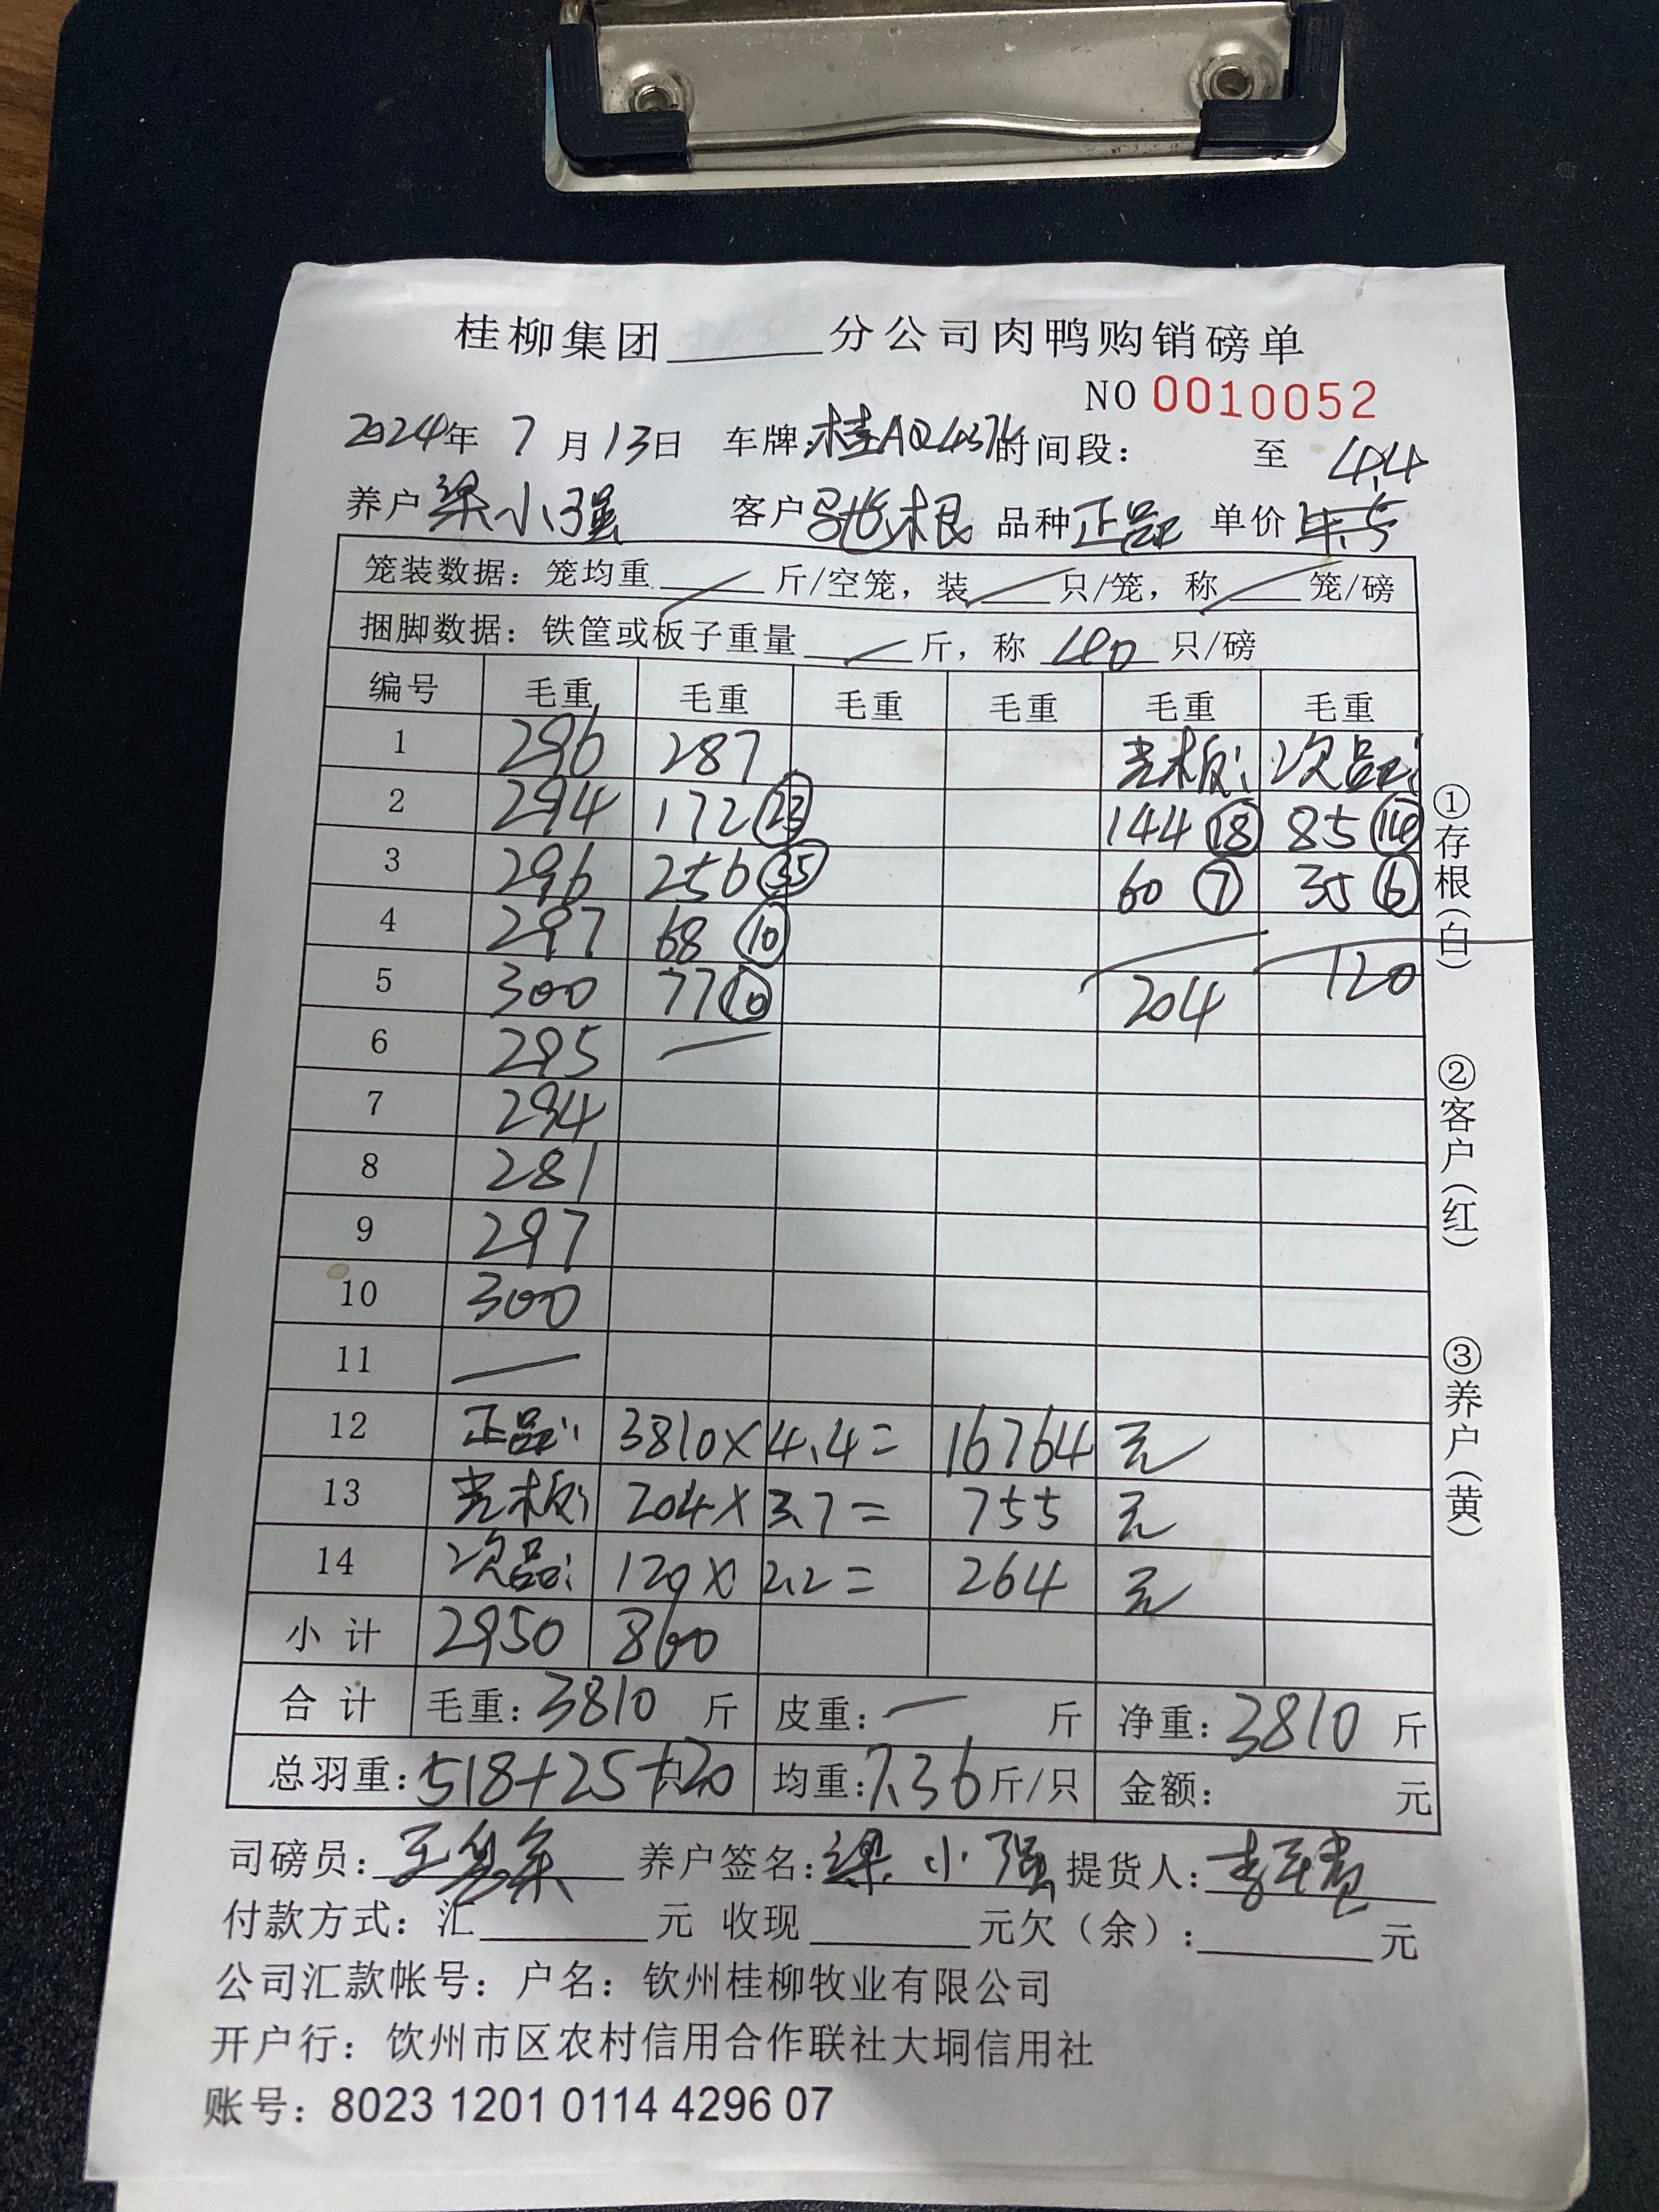 桂柳集团______分公司肉鸭购销磅单
NO 0010052
2024年 7月13日 车牌:桂AQ437 时间段: 至
4.4
养户 梁小强 客户 驰根 品种 正品 单价
笼装数据:笼均重 斤/空笼,装 只/笼,称 笼/磅
捆脚数据:铁筐或板子重量 斤,称 40 只/磅
编号 毛重 毛重 毛重 毛重 毛重 毛重
1 296 287 光板: 次品:
2 294 172 (23) 144 (18) 85 (14)
3 296 256 (35) 60 (7) 35 (6)
4 297 68 (10)
5 300 77 (10) 204 120
6 295 —
7 294
8 281
9 297
10 300
11 —
12 正品: 3810× 4.4= 16764 元
13 光板: 204× 3.7= 755 元
14 次品: 120× 2.2= 264 元
小计 2950 860
合计 毛重:3810 斤 皮重:— 斤 净重:3810 斤
总羽重:518+25+20 只 均重:7.36斤/只 金额: 元
司磅员: 养户签名:梁小强 提货人:
付款方式:汇______元 收现______元欠(余):______元
公司汇款帐号:户名:钦州桂柳牧业有限公司
开户行:钦州市区农村信用合作联社大垌信用社
账号:8023 1201 0114 4296 07
①存根(白)
②客户(红)
③养户(黄)